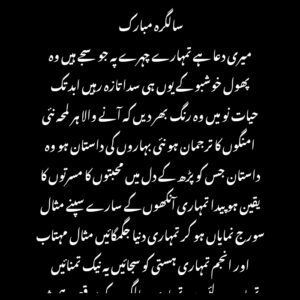 سالگرہ مبارک
میری دعا ہے تمہارے چہرے پہ جو سجے ہیں وہ
پھول خوشبو کے یوں ہی سدا تازہ رہیں ابد تک
حیات نو میں وہ رنگ بھر دیں کہ آنے والا ہر لمحہ نئی
امنگوں کا ترجمان ہو نئی بہاروں کی داستان ہو وہ
داستان جس کو پڑھ کے دل میں محبتوں کا مسرتوں کا
یقین ہو پیدا تمہاری آنکھوں کے سارے سپنے مثال
سورج نمایاں ہو کر تمہاری دنیا جگمگائیں مثال مہتاب
اور انجم تمہاری ہستی کو سجائیں یہ نیک تمنائیں